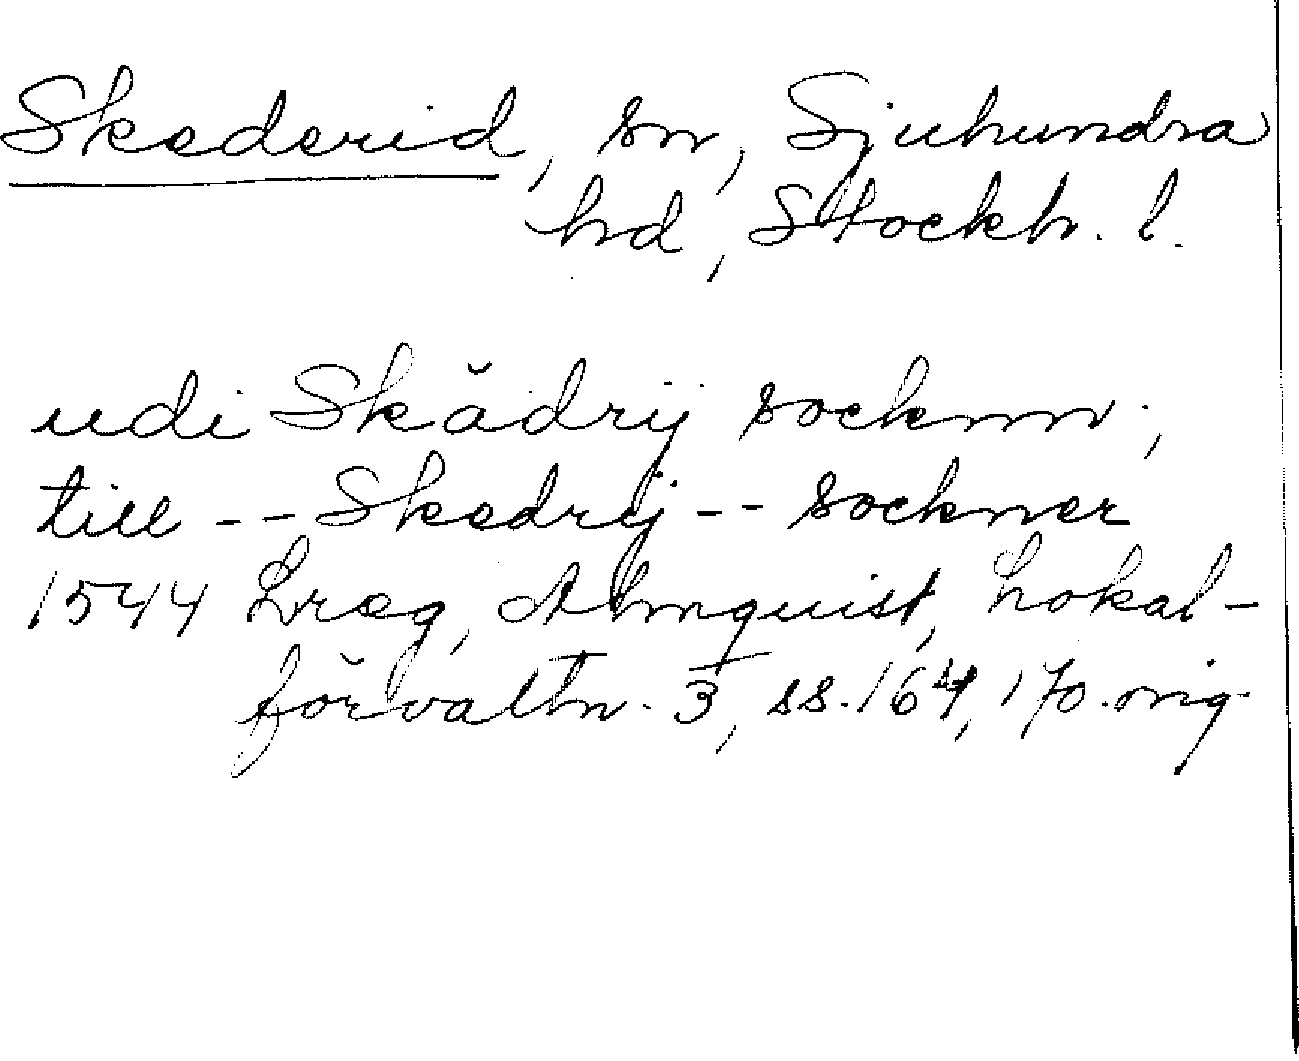 Skederid, sn, Sjuhundra
hd, Stockh. l.
udi Skädrij socknn;
till -- Skedrij -- sockner
1544 Lreg, Almquist, Lokal-
förvaltn. 3, ss. 164, 170. orig.